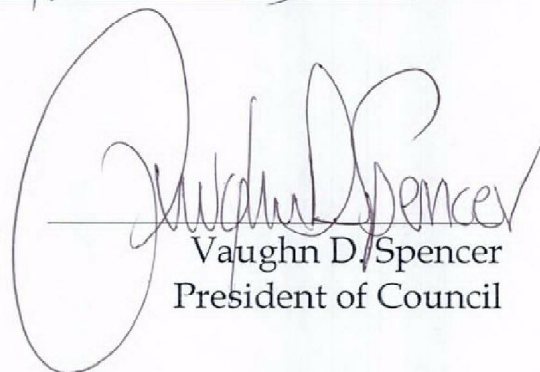 Vaughn D Spencer
Vaughn D. Spencer
President of Council